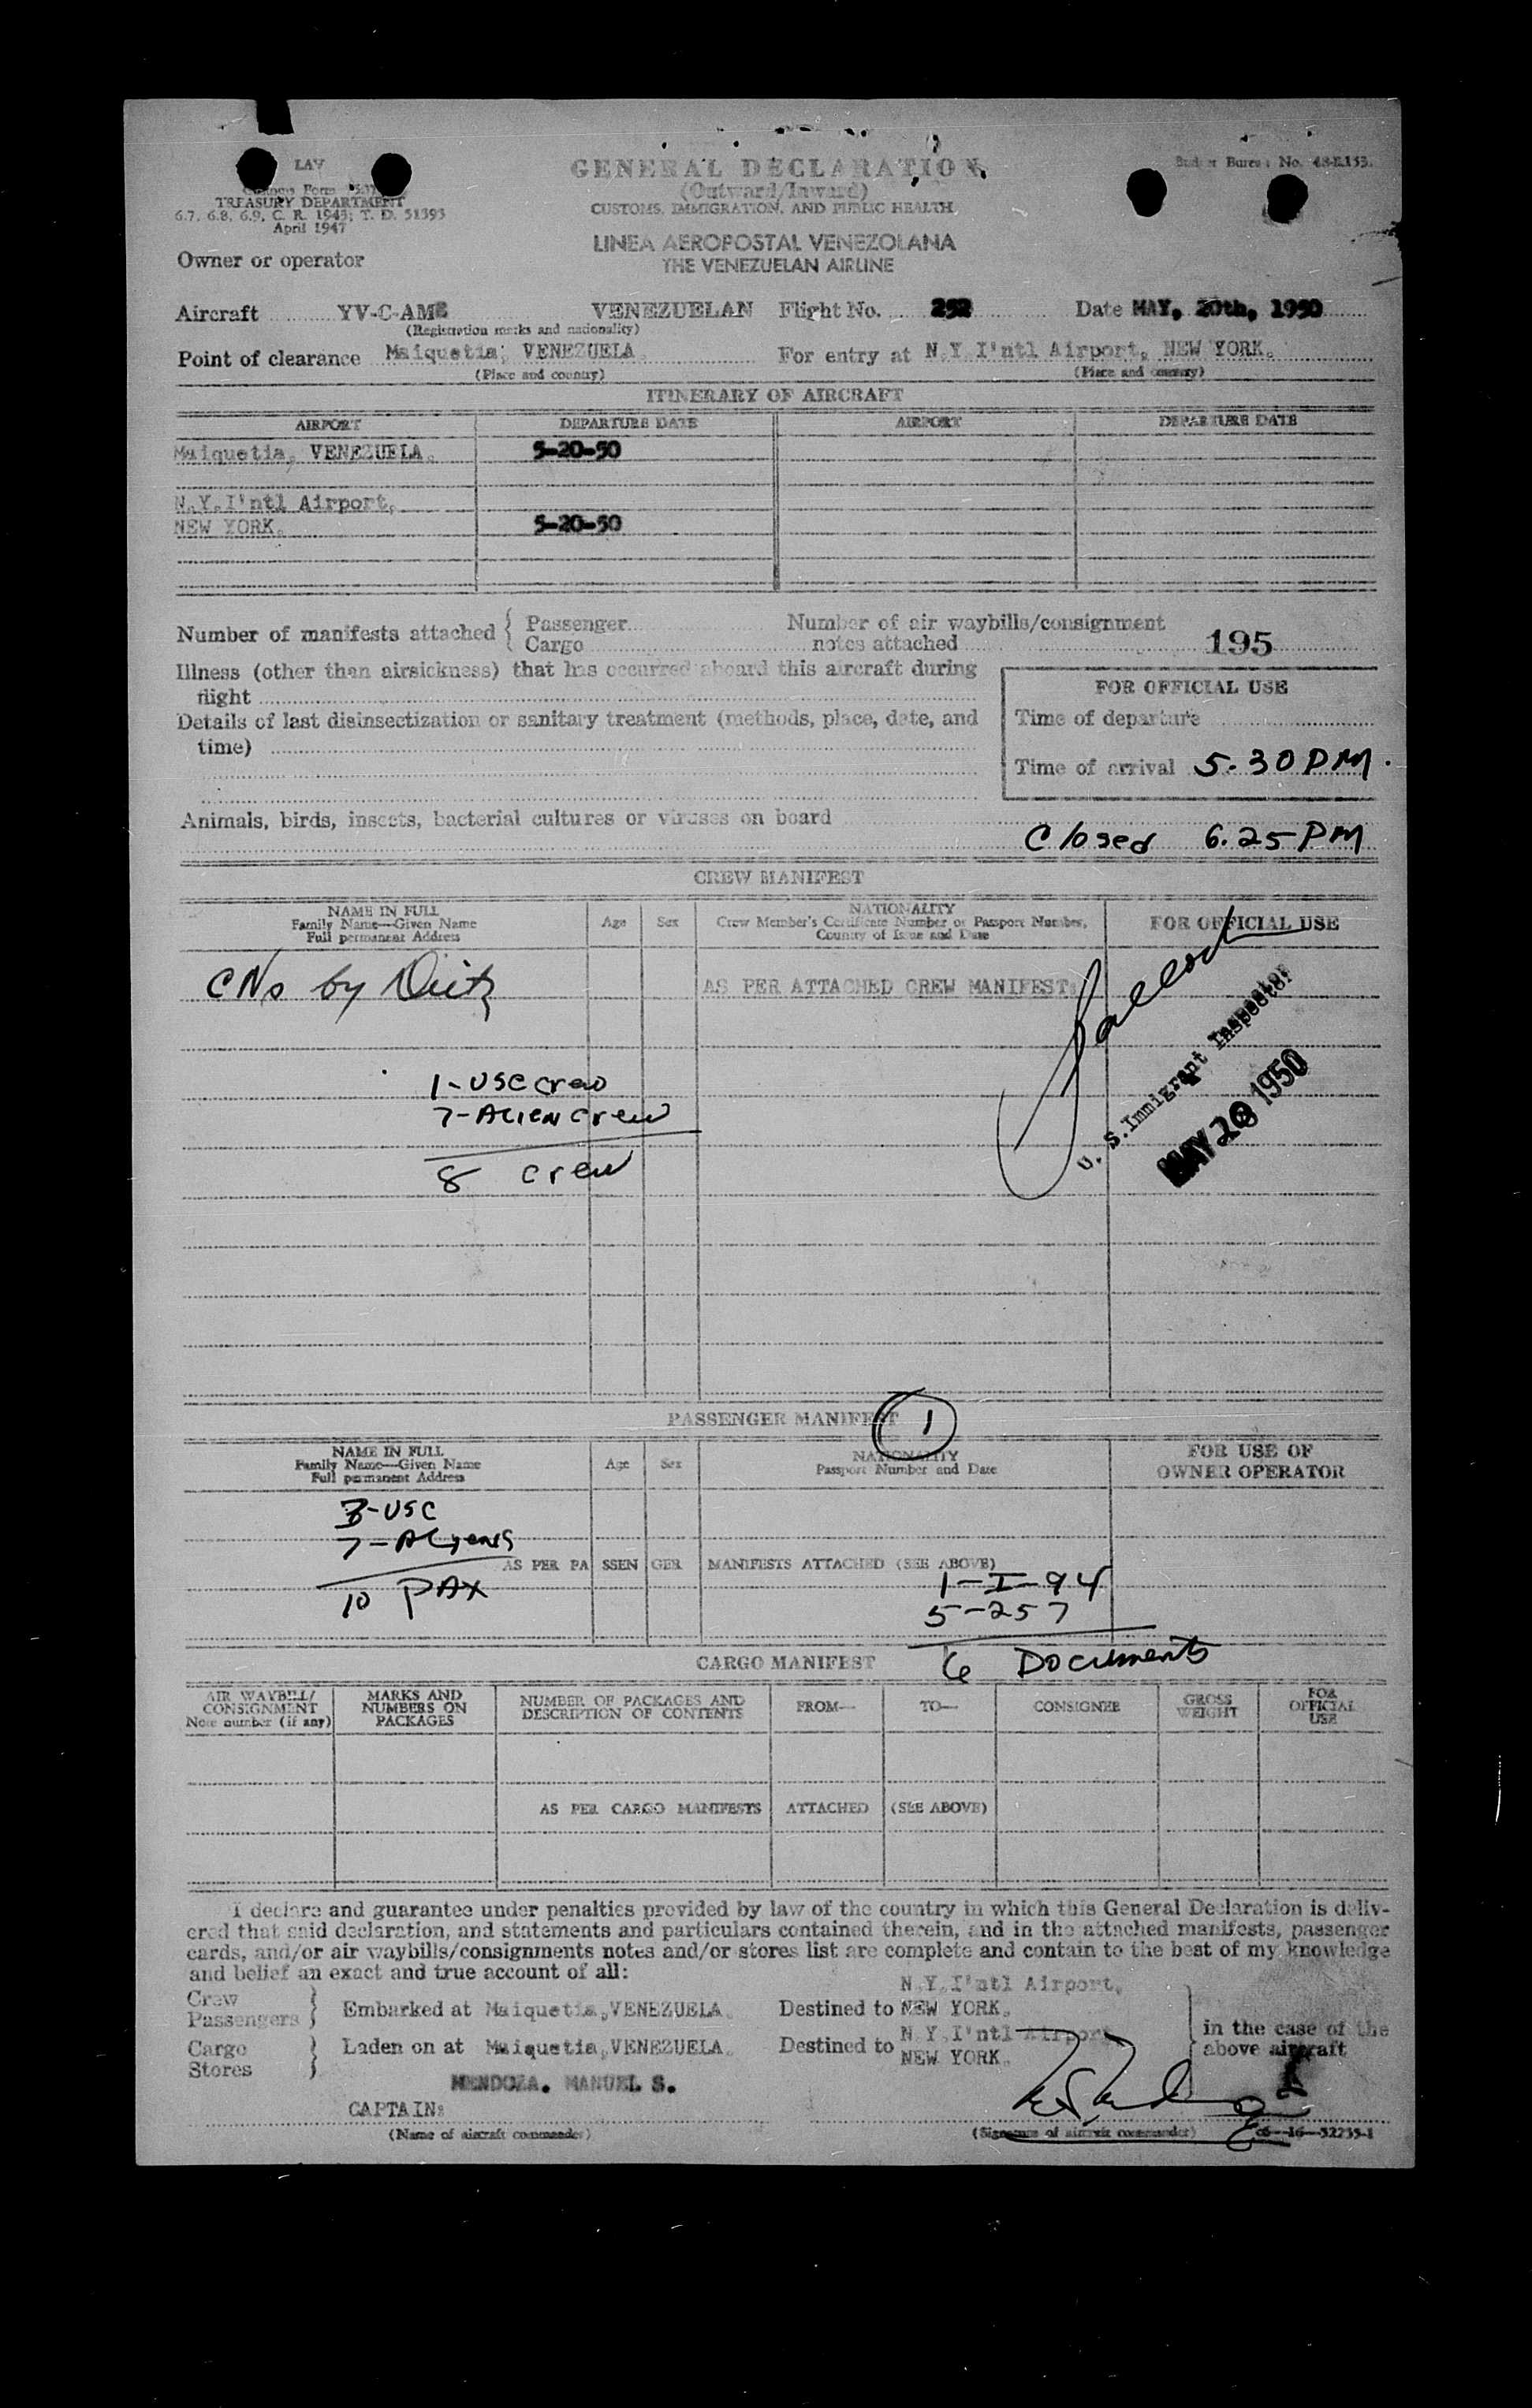 LAV
Customs Form
TREASURY DEPARTMENT
6.7, 6.8, 6.9, C. R. 1943; T. D. 51393
April 1947
GENERAL DECLARATION
(Outward/Inward)
CUSTOMS, IMMIGRATION, AND PUBLIC HEALTH
LINEA AEROPOSTAL VENEZOLANA
THE VENEZUELAN AIRLINE
Budget Bureau No. 48-R153.
Owner or operator
Aircraft YV-C-AME VENEZUELAN Flight No. 252 Date MAY, 20th, 1950
(Registration marks and nationality)
Point of clearance Maiquetia, VENEZUELA. For entry at N.Y.I'ntl Airport, NEW YORK.
(Place and country) (Place and country)
ITINERARY OF AIRCRAFT
AIRPORT DEPARTURE DATE AIRPORT DEPARTURE DATE
Maiquetia, VENEZUELA. 5-20-50
N.Y.I'ntl Airport,
NEW YORK. 5-20-50
Number of manifests attached { Passenger
Cargo
Number of air waybills/consignment
notes attached 195
Illness (other than airsickness) that has occurred aboard this aircraft during
flight
Details of last disinsectization or sanitary treatment (methods, place, date, and
time)
FOR OFFICIAL USE
Time of departure
Time of arrival 5.30 PM.
Animals, birds, insects, bacterial cultures or viruses on board
Closed 6.25 PM
CREW MANIFEST
NAME IN FULL
Family Name—Given Name
Full permanent Address
Age Sex
NATIONALITY
Crew Member's Certificate Number or Passport Number,
Country of Issue and Date
FOR OFFICIAL USE
CNs by
AS PER ATTACHED CREW MANIFEST:
U. S. Immigrant Inspector
MAY 20 1950
1-USC crew
7-ALIEN crew
8 crew
PASSENGER MANIFEST 1
NAME IN FULL
Family Name—Given Name
Full permanent Address
Age Sex
NATIONALITY
Passport Number and Date
FOR USE OF
OWNER OPERATOR
3-USC
7-ALiens
AS PER PASSENGER MANIFESTS ATTACHED (SEE ABOVE)
10 PAX
1-I-94
5-257
6 Documents
CARGO MANIFEST
AIR WAYBILL/
CONSIGNMENT
Note number (if any)
MARKS AND
NUMBERS ON
PACKAGES
NUMBER OF PACKAGES AND
DESCRIPTION OF CONTENTS
FROM— TO— CONSIGNEE
GROSS
WEIGHT
FOR
OFFICIAL
USE
AS PER CARGO MANIFESTS ATTACHED (SEE ABOVE)
I declare and guarantee under penalties provided by law of the country in which this General Declaration is deliv-
ered that said declaration, and statements and particulars contained therein, and in the attached manifests, passenger
cards, and/or air waybills/consignments notes and/or stores list are complete and contain to the best of my knowledge
and belief an exact and true account of all:
Crew
Passengers } Embarked at Maiquetia, VENEZUELA. Destined to N.Y.I'ntl Airport,
NEW YORK.
Cargo
Stores } Laden on at Maiquetia, VENEZUELA. Destined to N.Y.I'ntl Airport
NEW YORK.
in the case of the
above aircraft
MENDOZA. MANUEL S.
CAPTAIN:
(Name of aircraft commander) (Signature of aircraft commander) 16—52235-1